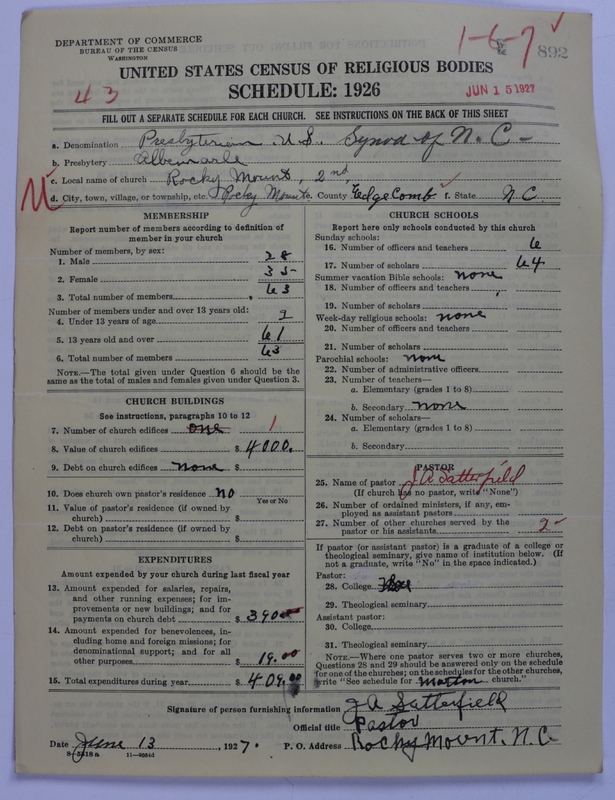 DEPARTMENT OF COMMERCE
BUREAU OF THE CENSUS
WASHINGTON
1-6-7
892
43
JUN 15 1927
UNITED STATES CENSUS OF RELIGIOUS BODIES
SCHEDULE: 1926
FILL OUT A SEPARATE SCHEDULE FOR EACH CHURCH. SEE INSTRUCTIONS ON THE BACK OF THIS SHEET
a. Denomination Presbyterian U.S. Synod of N.C-
b. Presbytery Albemarle
c. Local name of church Rocky Mount, 2nd,
d. City, town, village, or township, etc. Rocky Mount e. County EdgeComb f. State N C
MEMBERSHIP
Report number of members according to definition of
member in your church
Number of members, by sex:
1. Male 28
2. Female 35
3. Total number of members 63
Number of members under and over 13 years old:
4. Under 13 years of age 2
5. 13 years old and over 61
6. Total number of members 63
NOTE.—The total given under Question 6 should be the
same as the total of males and females given under Question 3.
CHURCH BUILDINGS
See instructions, paragraphs 10 to 12
7. Number of church edifices one 1
8. Value of church edifices $ 4000.
9. Debt on church edifices none $
10. Does church own pastor's residence no
Yes or No
11. Value of pastor's residence (if owned by
church) $
12. Debt on pastor's residence (if owned by
church) $
EXPENDITURES
Amount expended by your church during last fiscal year
13. Amount expended for salaries, repairs,
and other running expenses; for im-
provements or new buildings; and for
payments on church debt $ 390
14. Amount expended for benevolences, in-
cluding home and foreign missions; for
denominational support; and for all
other purposes $ 19.00
15. Total expenditures during year $ 409.00
CHURCH SCHOOLS
Report here only schools conducted by this church
Sunday schools:
16. Number of officers and teachers 6
17. Number of scholars 64
Summer vacation Bible schools: none
18. Number of officers and teachers
19. Number of scholars
Week-day religious schools: none
20. Number of officers and teachers
21. Number of scholars
Parochial schools: none
22. Number of administrative officers
23. Number of teachers—
a. Elementary (grades 1 to 8)
b. Secondary none
24. Number of scholars—
a. Elementary (grades 1 to 8)
b. Secondary
PASTOR
25. Name of pastor J A Satterfield
(If church has no pastor, write "None")
26. Number of ordained ministers, if any, em-
ployed as assistant pastors
27. Number of other churches served by the
pastor or his assistants 2
If pastor (or assistant pastor) is a graduate of a college or
theological seminary, give name of institution below. (If
not a graduate, write "No" in the space indicated.)
Pastor:
28. College
29. Theological seminary
Assistant pastor:
30. College
31. Theological seminary
NOTE.—Where one pastor serves two or more churches,
Questions 28 and 29 should be answered only on the schedule
for one of the churches; on the schedules for the other churches,
write "See schedule for church."
Signature of person furnishing information J A Satterfield
Official title Pastor
Date June 13, 1927. P. O. Address Rocky Mount, N.C
8-5518 a